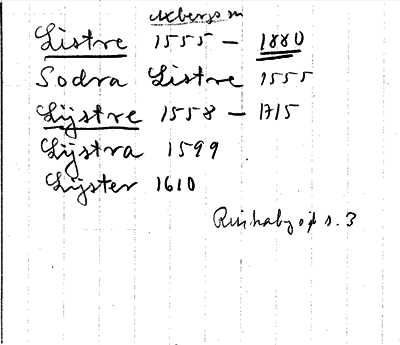 Listre 1555 – 1880
Södra Listre 1555
Lijstre 1558 – 1715
Lijstra 1599
Lijster 1610
s. 3